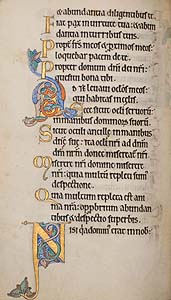 & abundantia diligentibus te
Fiat pax in uirtute tua: & abun
dantia in turribus tuis.
Propt frs meos & pximos meos:
loquebar pacem de te.
Propter domum dni di nri:
quesiui bona tibi.
Ad te leuaui oclos meos:
qui habitas in celis.
Ecce sicut oculi seruorū:
in manibus dominorū suorū.
Sicut oculi ancille in manibus
dne sue: ita ocli nri ad dnm
dm nrm donec misereat nri.
Miserere nri domine miserere
nri: quia multū repleti sum
despectione.
Quia multum repleta est ani
ma nra: obprobriū abundan
tibus & despectio superbis.
Nisi qa dominus erat in nob